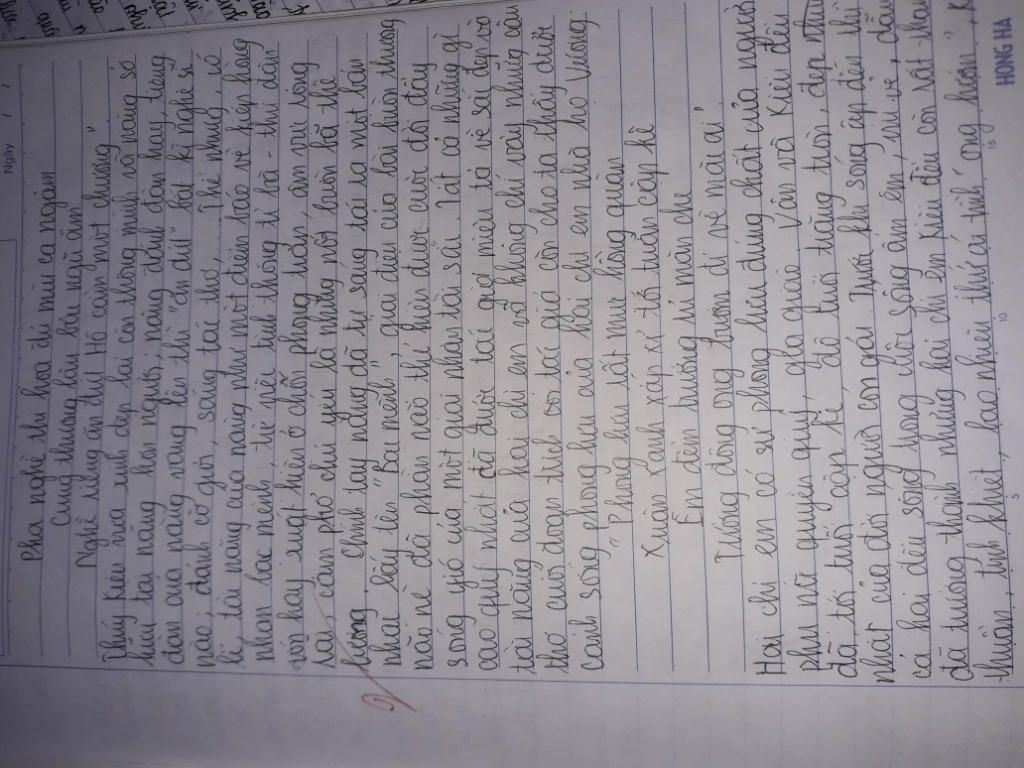 Ngày / /
Pha nghề thi họa đủ mùi ca ngâm
Cung thương lầu bậu ngũ âm
Nghề riêng ăn đứt Hồ cầm một chương"
Thúy Kiều vừa xinh đẹp lại còn thông minh và vô vàng số
hữu tài năng hơn người, nàng đánh đàn hay, tiếng
đàn của nàng vang lên thì "ăn đứt" bất kì nghệ sĩ
nào, đánh cờ giỏi, sáng tác thơ, Thế nhưng, có
lẽ tài năng của nàng như một điềm báo về kiếp hồng
nhan bạc mệnh, tiếc tinh thông tì bà - thứ đàn
vốn hay xuất hiện ở chốn phong trần, âm vui lòng
lại cầm phố chủ yếu là những nốt buồn bã thê
lương. Chính tay nàng đã tự sáng tác ra một bản
nhạc lấy tên "Bạc mệnh", giai điệu của bài buồn thương
não nề đã phần nào thể hiện được cuộc đời đầy
sóng gió của một giai nhân tài sắc. Tất cả những gì
cao quý nhất đã được tác giả miêu tả về sắc đẹp và
tài năng của hai chị em và không chỉ vậy những câu
thơ cuối đoạn trích tác giả còn cho ta thấy được
cảnh sống phong lưu của hai chị em nhà họ Vương
"Phong lưu rất mực hồng quần
Xuân xanh xấp xỉ tới tuần cập kê
Êm đềm trướng rủ màn che
Tường đông ong bướm đi về mặc ai"
Hai chị em có sự phong lưu đúng chất của người
phụ nữ quyền quý, gia giáo. Vân và Kiều đều
đã tới tuổi cập kê, độ tuổi trăng tròn, đẹp
nhất của đời người con gái. Trước khi sóng gió ập đến thì
cả hai đều sống trong cuộc sống ấm êm, vui vẻ, dẫu
đã trưởng thành nhưng hai chị em Kiều đều còn rất
thuần, tinh khiết, bao nhiêu thứ ái tình "ong bướm",
5 10 15
HONG HA